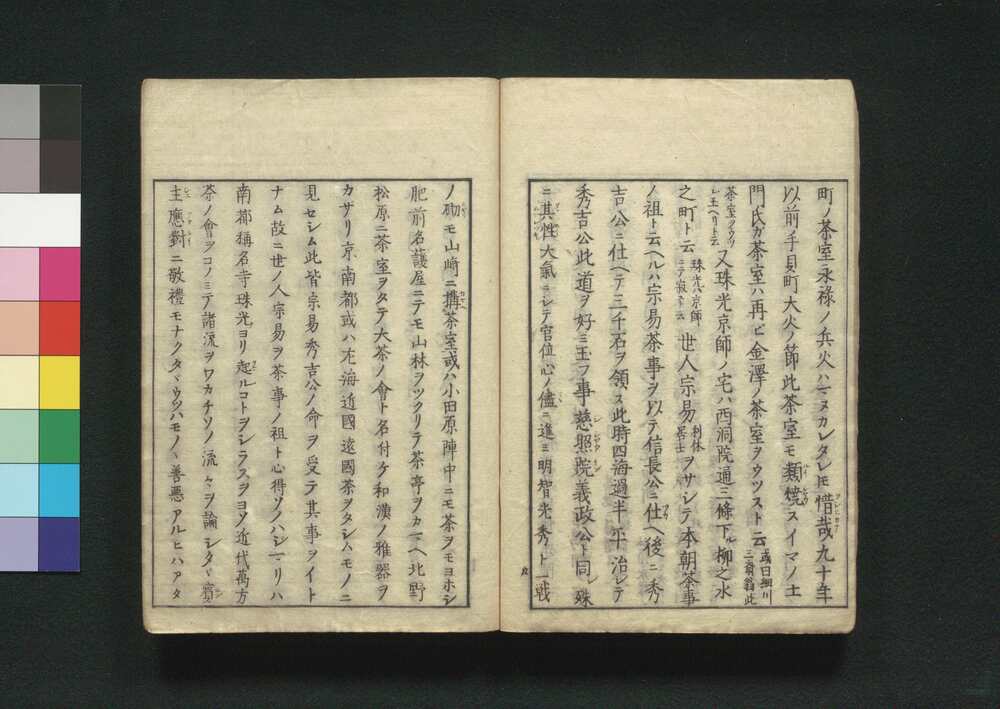 町ノ茶室永禄ノ兵火ハマヌカレタレ𪜈惜哉九十年
以前手貝町大火ノ節此茶室モ類焼スイマノ土
門氏カ茶室ハ再ヒ金澤ノ茶室ヲウツスト云或曰細川三齋翁此
茶室ヲウツシ玉ヘリト云又珠光京師ノ宅ハ西洞院通三條下ル柳之水
之町ト云珠光ハ京師ニテ寂スト云世人宗易利休居士ヲサシテ本朝茶事
ノ祖ト云ヘルハ宗易茶事ヲ以テ信長公ニ仕ヘ後ニ秀
吉公ニ仕ヘテ三千石ヲ領ス此時四海過半平治シテ
秀吉公此道ヲ好ミ玉フ事慈照院義政公ト同シ殊
ニ其性大氣ニシテ官位心ノ儘ニ進ミ明智光秀ト一戦
ノ砌モ山崎ニ搆茶室或ハ小田原陣中ニモ茶ヲモヨホシ
肥前名護屋ニテモ山林ヲツクリテ茶亭ヲカマヘ北野
松原ニ茶室ヲタテ大茶ノ會ト名付ケ和漢ノ雅器ヲ
カサリ京南都或ハ左海近國遠國茶ヲタシムモノニ
見セシム此皆宗易秀吉公ノ命ヲ受テ其事ヲイト
ナム故ニ世ノ人宗易ヲ茶事ノ祖ト心得ソノハシマリハ
南都稱名寺珠光ヨリ起ルコトヲシラスヲヨソ近代萬方
茶ノ會ヲコノミテ諸流ヲワカチソノ流々ヲ論シタヽ賓
主應對ニ敬禮モナクタヽウツハモノヽ善悪アルヒハアタ